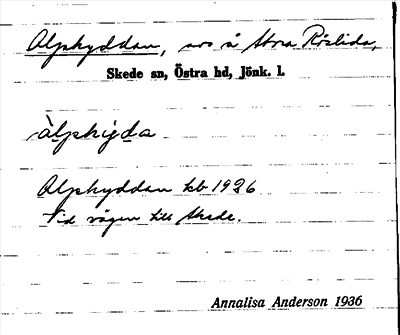 Alphyddan, avs å Stora Röslida,
Skede sn, Östra hd, Jönk. l.
àlphị̀da
Alphyddan kb 1926
Vid vägen till Skede.
Annalisa Anderson 1936